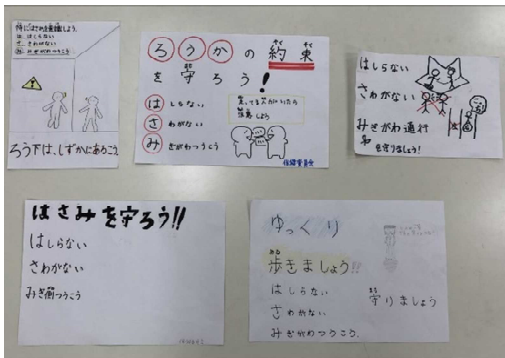 特にはさみを意識しよう。
は はしらない
さ さわがない
み みぎがわつうこう
ろう下は、しずかにあるこう。
ろうかの約束
やく そく
を守ろう!
まも
はしらない
さわがない
みぎがわつうこう
走ってる人がいたら
注意しよう
保健委員会
はしらない
さわがない
みぎがわ通行
を守りましょう!
はさみを守ろう!!
はしらない
さわがない
みぎ側つうこう
ゆっくり
歩きましょう!!
はしらない
さわがない
みぎがわつうこう。
守りましょう